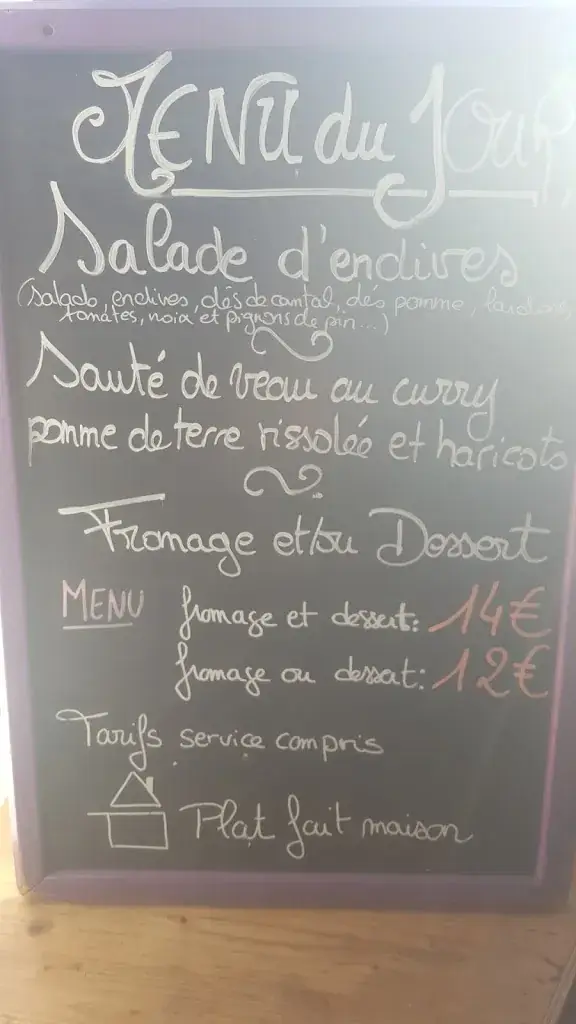 MENU du JOUR
Salade d'endives
(salade, endives, dés de cantal, dés pomme, lardons,
tomates, noix et pignons de pin...)
Sauté de veau au curry
pomme de terre rissolée et haricots
Fromage et/ou Dessert
MENU fromage et dessert: 14€
fromage ou dessert: 12€
Tarifs service compris
Plat fait maison